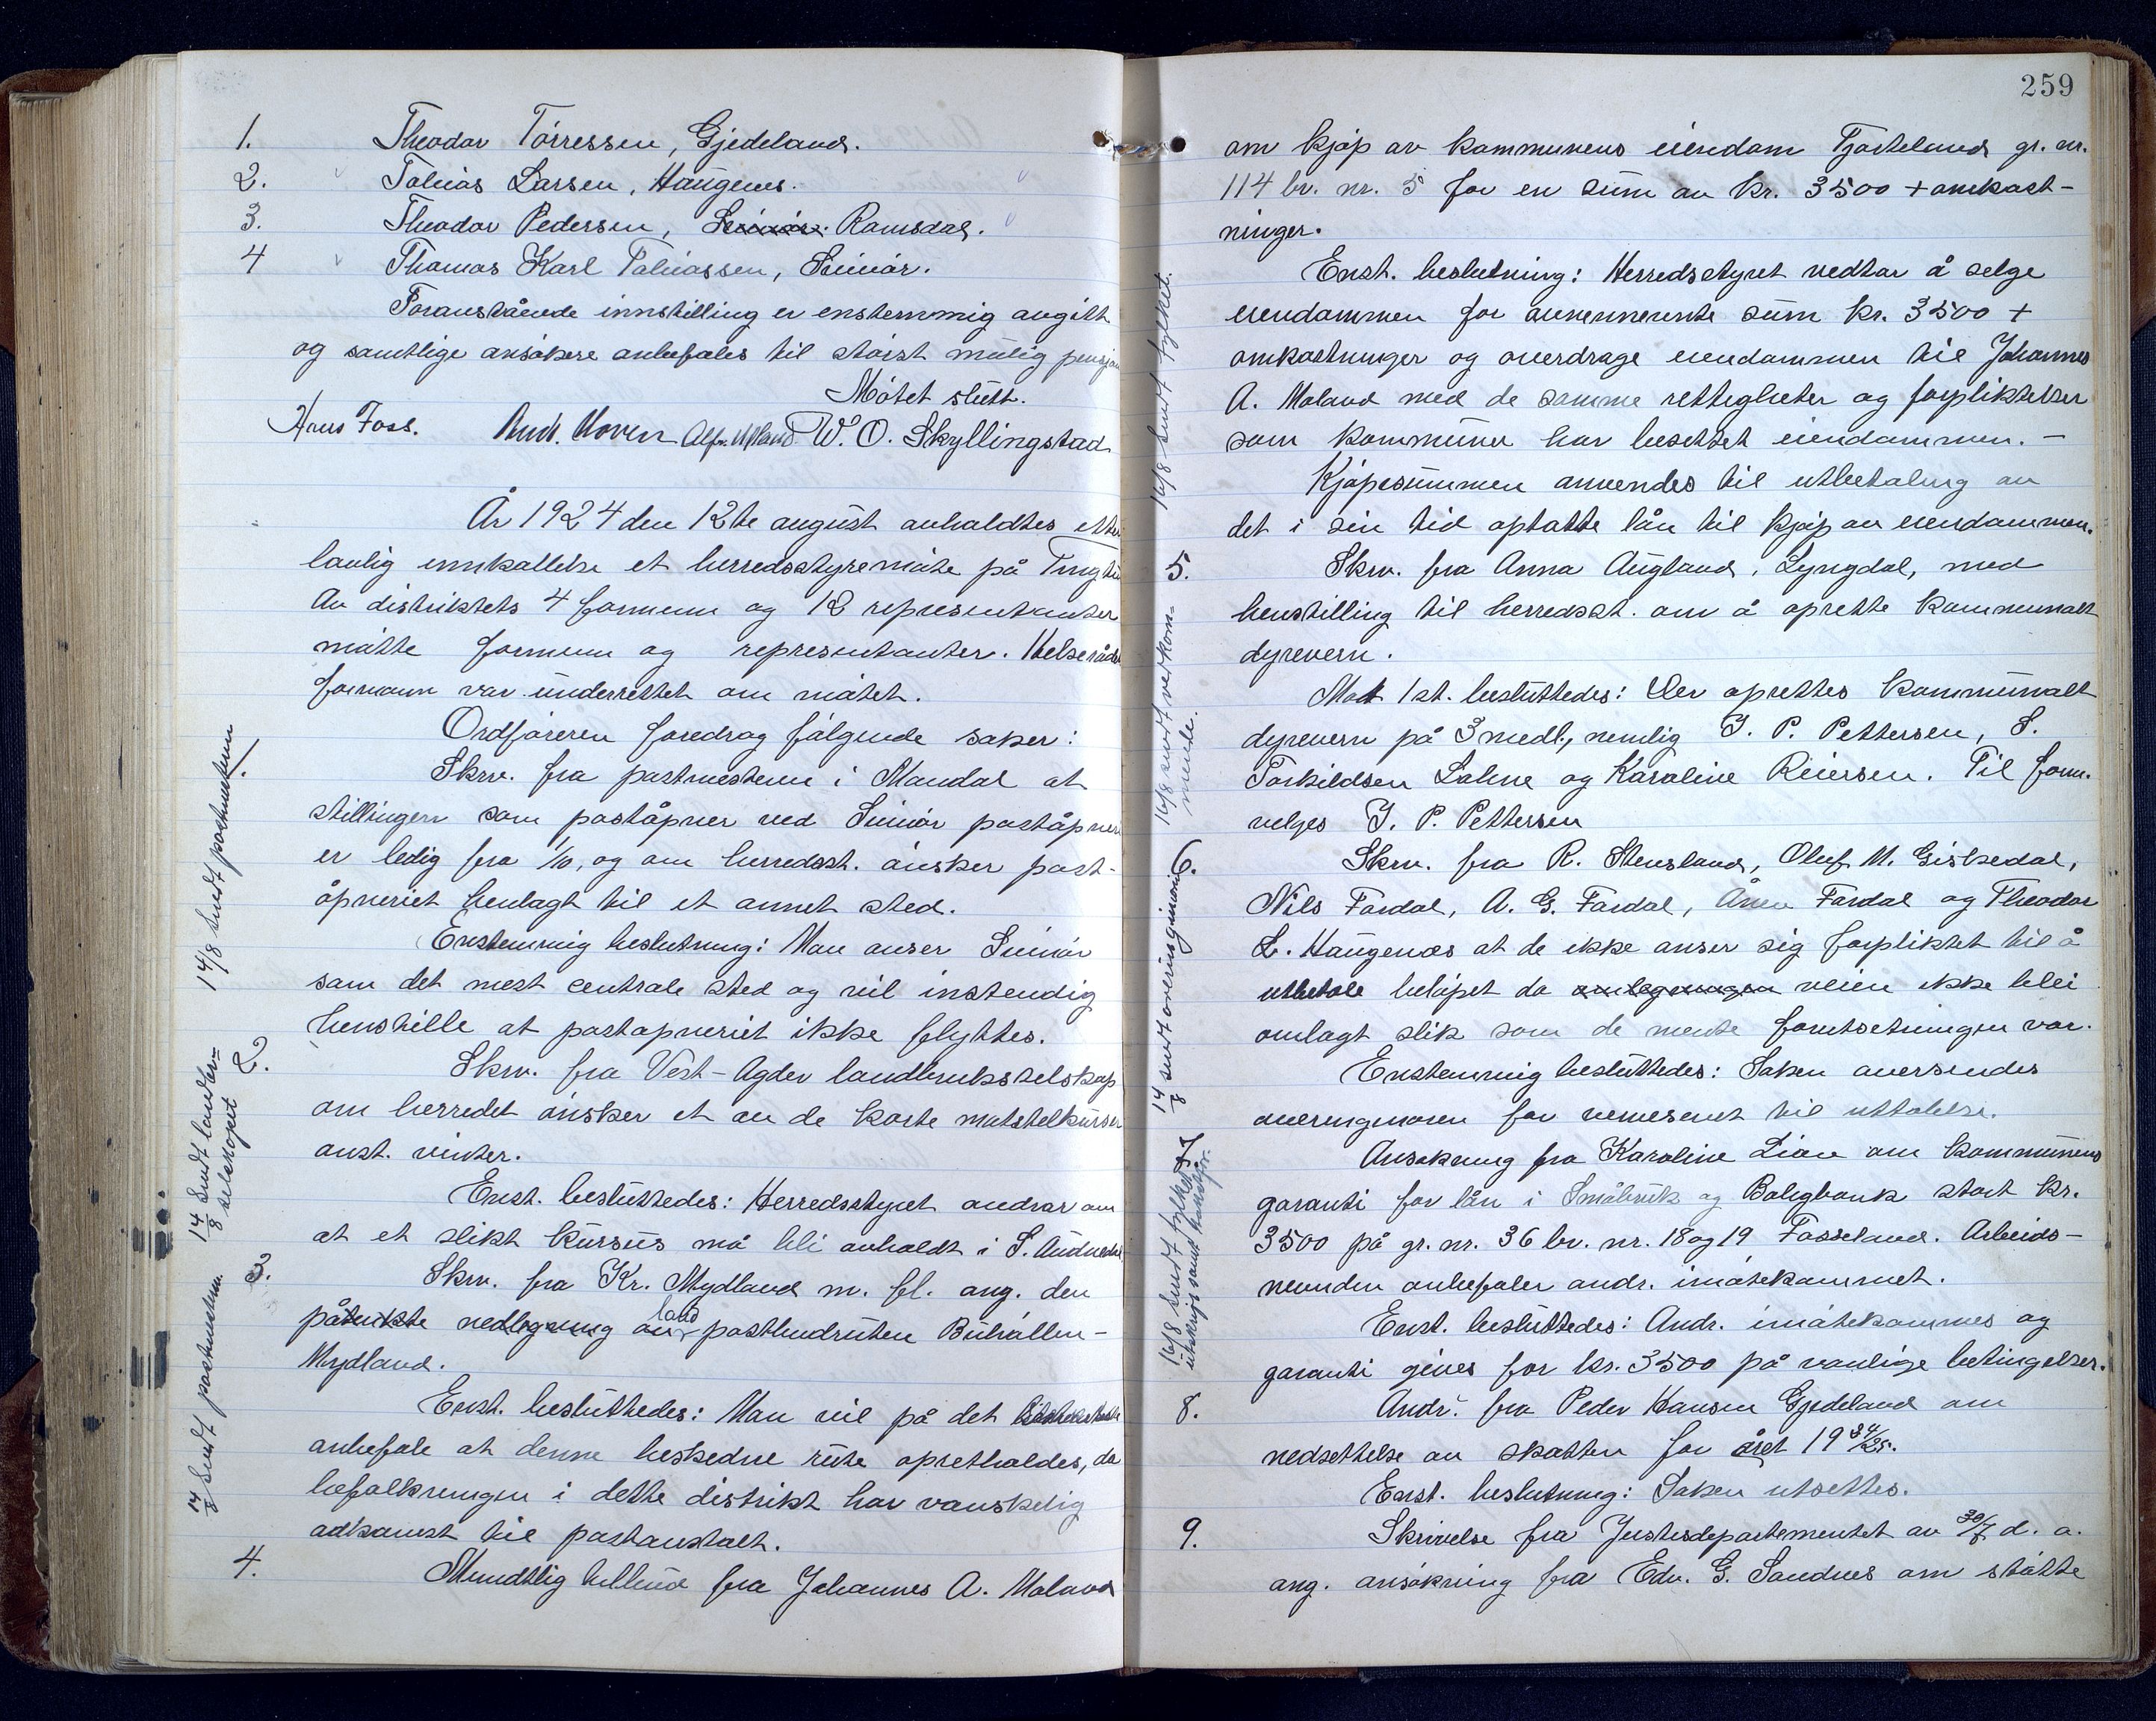 1. Theodor Tørressen, Gjedeland.
2. Tobias Larsen, Haugenes.
3. Theodor Pedersen, Snimår. Ramsdal.
4 Thomas Karl Tobiassen, Snimår.
Foranstående innstilling er enstemmig avgitt
og samtlige ansøkere anbefales til størst mulig pensjon
Møtet slutt.
Hans Foss. And. Hoven Alfr. Øpland W. O. Skyllingstad
År 1924 den 12te august anholdtes efter
lovlig innkallelse et herredsstyremøte på Tingtun
Av distriktets 4 formenn og 12 representanter
møtte formenn og representanter. Helserådets
formann var underrettet om møtet.
Ordføreren foredrog følgende saker:
1. Skrv. fra postmesteren i Mandal at
stillingen som poståpner ved Snimår poståpneri
er ledig fra 1/10, og om herredsst. ønsker post-
åpneriet henlagt til et annet sted.
Enstemmig beslutning: Man anser Snimår
som det mest centrale sted og vil instendig
henstille at postapneriet ikke flyttes.
14/8 sendt postmesteren
2. Skrv. fra Vest-Agder landbruksselskap
om herredet ønsker et av de korte matstelkurser
anst. vinter.
Enst. besluttedes: Herredsstyret andrar om
at et slikt kursus må bli avholdt i S. Audnedal
14/8 sendt landbr=
selskapet
3. Skrv. fra Kr. Mydland m. fl. ang. den
påtenkte nedlegning av land postbudruten Buhållen-
Mydland.
Enst. besluttedes: Man vil på det
anbefale at denne beskedne rute opretholdes, da
befolkningen i dette distrikt har vanskelig
adkomst til postanstalt.
14/8 sendt postmesteren.
4. Mundtlig tilbud fra Johannes A. Moland
259
om kjøp av kommunens eiendom Fjorteland gr. nr.
114 br. nr. 5 for en sum av kr. 3500 + omkost-
ninger.
Enst. beslutning: Herredsstyret vedtar å selge
eiendommen for ovennevnte sum kr. 3500 +
omkostninger og overdrage eiendommen til Johannes
A. Moland med de samme rettigheter og forpliktelser
som kommunen har besittet eiendommen. -
Kjøpesummen anvendes til utbetaling av
det i sin tid optatte lån til kjøp av eiendommen.
16/8 sendt fylket.
5. Skrv. fra Anna Augland, Lyngdal, med
henstilling til herredsst. om å oprette kommunalt
dyrevern.
Mot 1 st. besluttedes: Der oprettes kommunalt
dyrevern på 3 medl., nemlig J. P. Pettersen, S.
Torkildsen Lohne og Karoline Reiersen. Til form.
velges J. P. Pettersen
16/8 sendt vedkom=
mende.
6. Skrv. fra R. Stensland, Oluf M. Giskedal,
Nils Færdal, A. G. Færdal, Ånen Færdal og Theodor
L. Haugenæs at de ikke anser sig forpliktet til å
utbetale beløpet da omlegningen veien ikke blei
omlagt slik som de mente forutsetningen var.
Enstemmig besluttedes: Saken oversendes
overingeniøren for veivesenet til uttalelse.
14/8 sendt overingeniøren
7 Ansøkning fra Karoline Lian om kommunens
garanti for lån i Småbruk og Boligbank stort kr.
3500 på gr. nr. 36 br. nr. 18 og 19 Fosseland. Arbeids-
nevnden anbefaler andr. imøtekommet.
Enst. besluttedes: Andr. imøtekommes og
garanti gives for kr. 3500 på vanlige betingelser.
16/8 sendt fylket
utskrift samt
8. Andr. fra Peder Hansen Gjedeland om
nedsettelse av skatten for året 1924/25.
Enst. beslutning: Saken utsettes.
9. Skrivelse fra Justisdepartementet av 30/7 d. a.
ang. ansøkning fra Edv. G. Sandnes om støtte